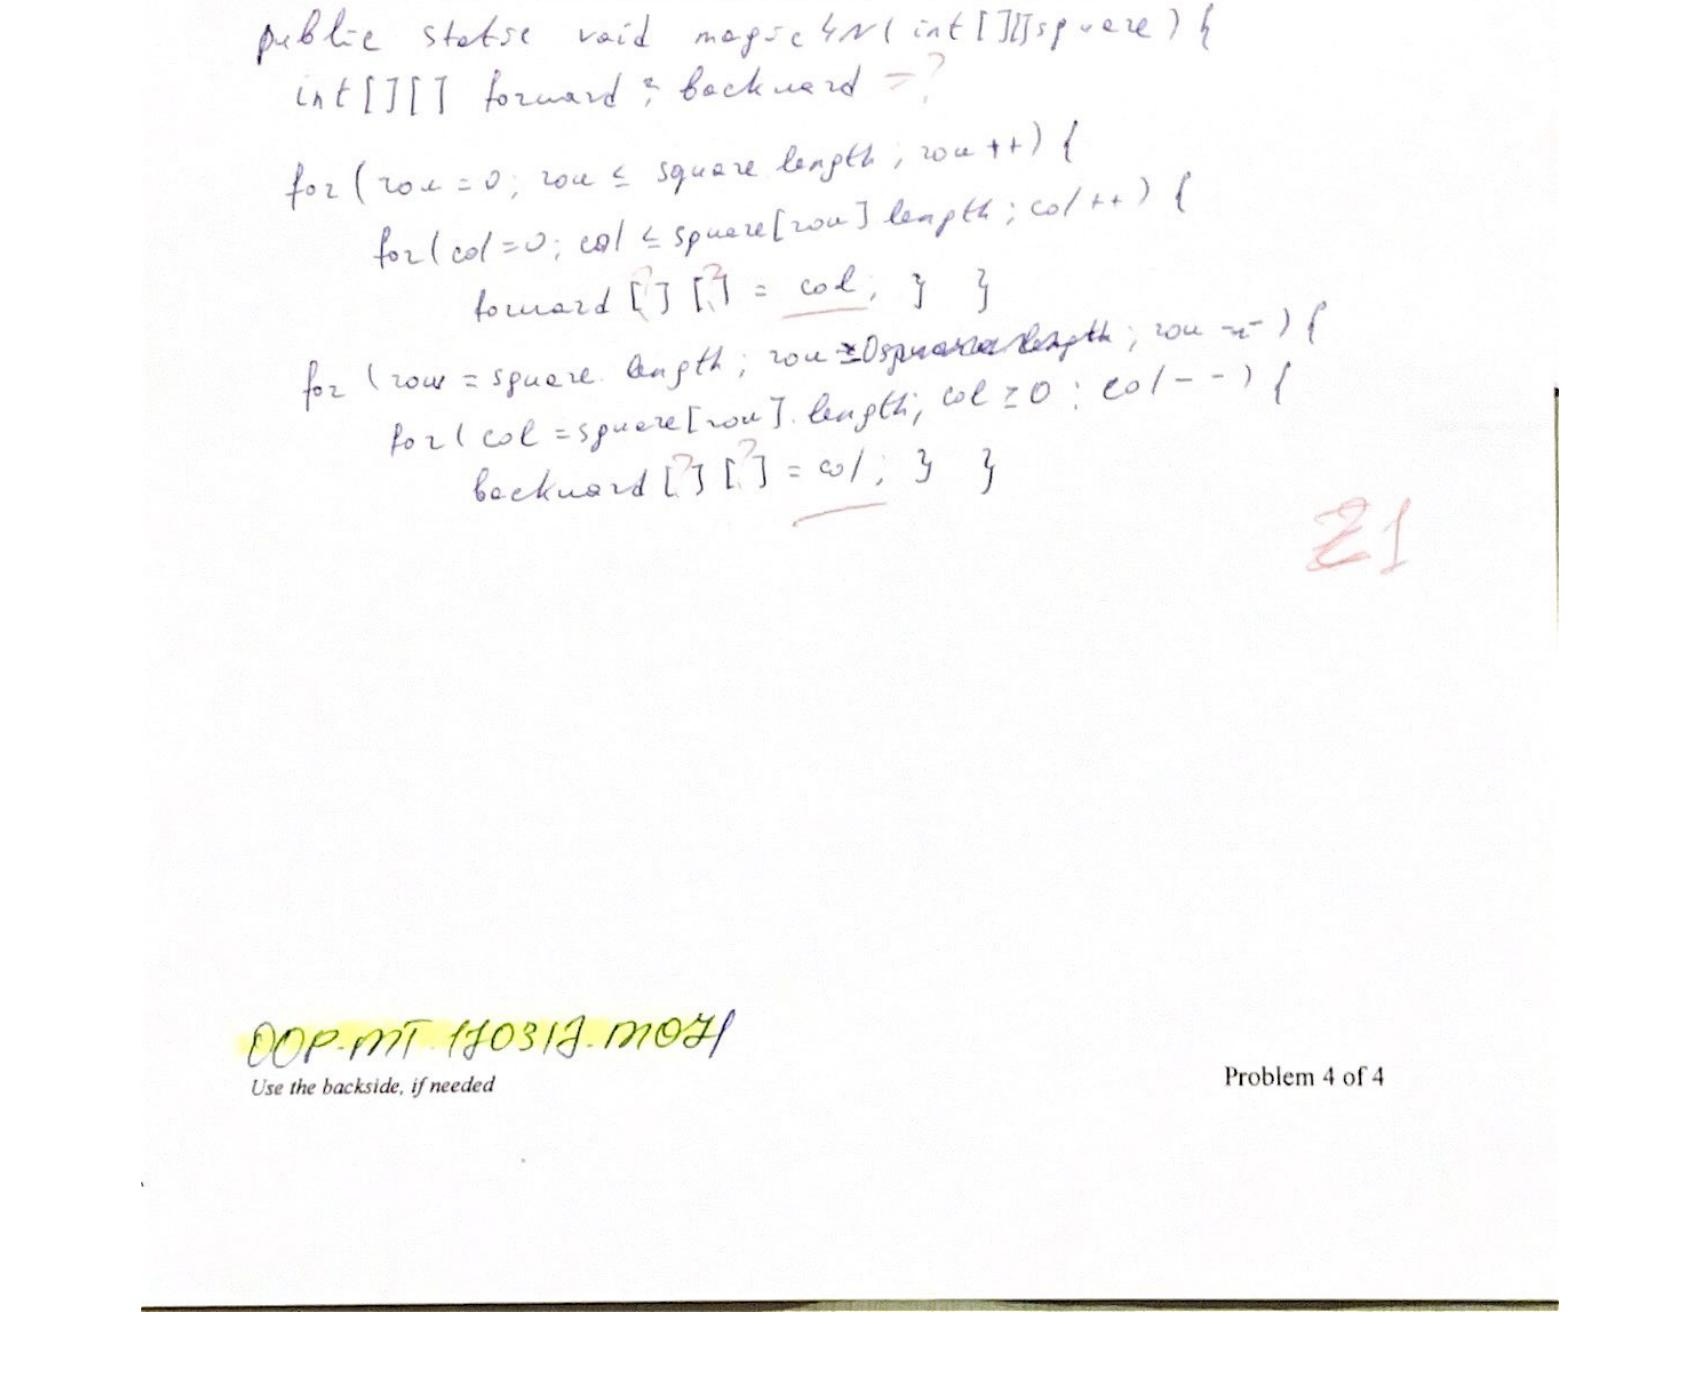 public static void magic4N(int[][]square){
int[][] forward; backward =?
for(row=0; row ≤ square length; row++){
for(col=0; col ≤ square[row] length; col++){
forward [?] [?] = col; } }
for (row = square. length; row ≥0 ; row --){
for(col =square[row]. length; col ≥0; col--){
backward [?] [?] = col; } }
21
OOP-MT.170317.M071
Use the backside, if needed
Problem 4 of 4